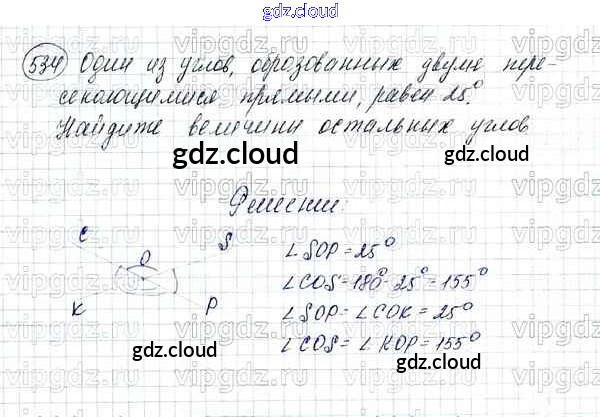 gdz.cloud
534 Один из углов, образованных двумя пере-
секающимися прямыми, равен 25°.
Найдите величины остальных углов
gdz.cloud
gdz.cloud
Решение.
C
S
O
K
P
∠SOP = 25°
∠COS = 180° - 25° = 155°
∠SOP = ∠COK = 25°
∠COS = ∠KOP = 155°
gdz.cloud
gdz.cloud
gdz.cloud